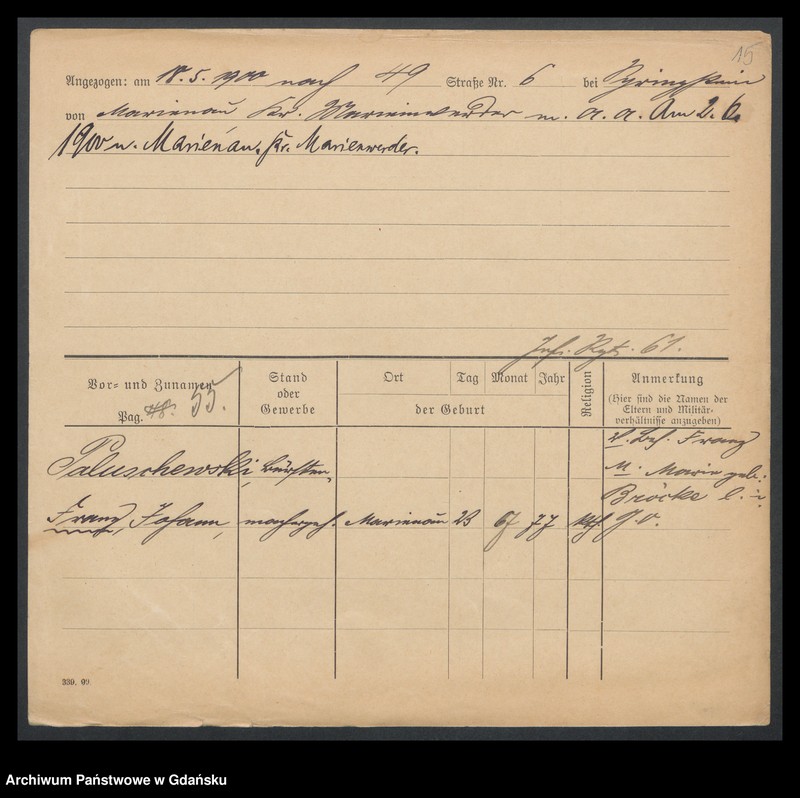 15
Angezogen: am 18. 5. 1900 nach 49 Straße Nr. 6 bei
von Marienau Kr. Marienwerder m. a. a. Am 2. 6.
1900 n. Marienau. Kr. Marienwerder.
Inf. Rgt. 61.
Vor- und Zunamen Stand oder Gewerbe Ort Tag Monat Jahr der Geburt Religion Anmerkung
(Hier sind die Namen der Eltern und Militär-verhältnisse anzugeben)
Pag. 48. 55.
V. Bes. Franz
Paluschewski Bürsten- M. Marie geb.
Bröcke
Franz, Johann, macherges. Marienau 23 6 77 kth.
330. 09.
Archiwum Państwowe w Gdańsku